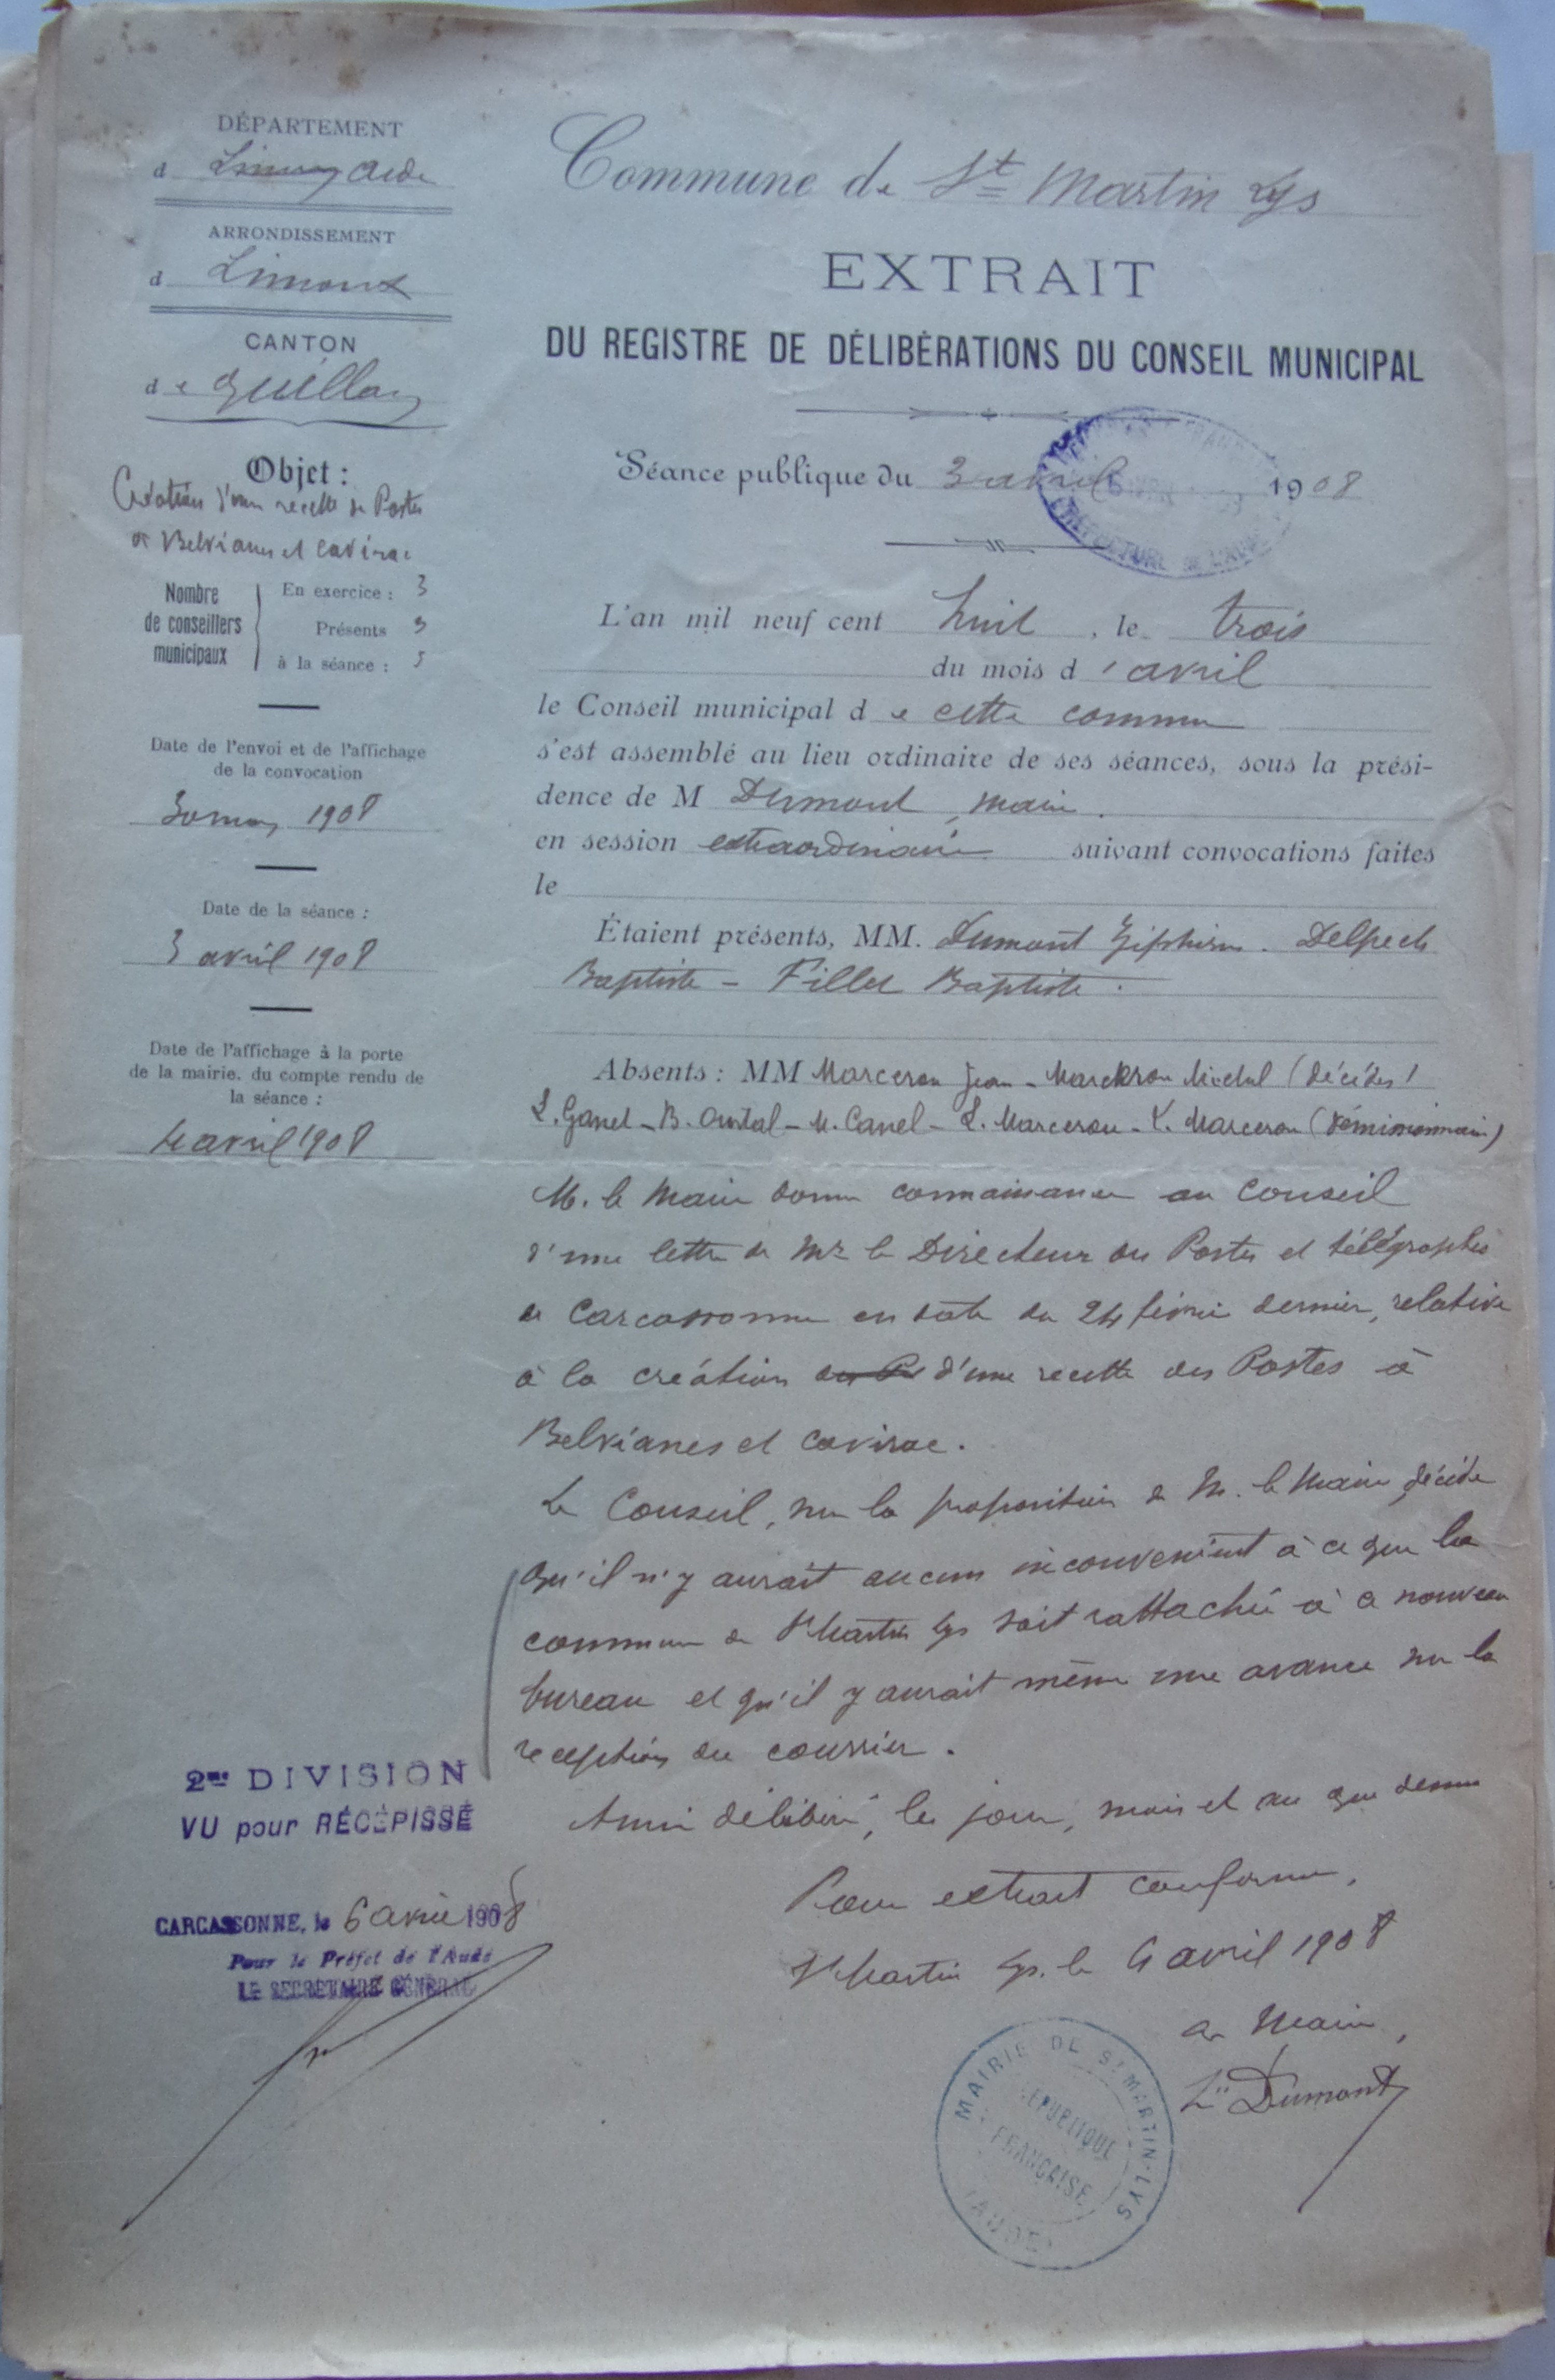 DÉPARTEMENT
d Aude
ARRONDISSEMENT
d Limoux
CANTON
de Quillan
Objet :
Création d'une recette de Postes
à Belvianes et Cavirac
Nombre de conseillers municipaux
En exercice : 3
Présents 3
à la séance : 3
Date de l'envoi et de l'affichage
de la convocation
30 mars 1908
Date de la séance :
3 avril 1908
Date de l'affichage à la porte
de la mairie, du compte rendu de
la séance :
4 avril 1908
Commune de St Martin Lys
EXTRAIT
DU REGISTRE DE DÉLIBÉRATIONS DU CONSEIL MUNICIPAL
Séance publique du 3 avril 1908
L'an mil neuf cent huit, le trois
du mois d'avril
le Conseil municipal de cette commune
s'est assemblé au lieu ordinaire de ses séances, sous la prési-
dence de M Dumont, maire.
en session extraordinaire suivant convocations faites
le
Étaient présents, MM. Dumont Delpech
Baptiste - Fillet Baptiste.
Absents : MM Marceron Jean - Marceron Michel (décédés)
L. Ganel - B. - M. Canel - L. Marcerou - Marcerou (démissionnaires)
M. le Maire donne connaissance au Conseil
d'une lettre de Mr le Directeur des Postes et télégraphes
de Carcassonne en date du 24 février dernier, relative
à la création d'une recette des Postes à
Belvianes et Cavirac.
Le Conseil, sur la proposition de M. le Maire, décide
qu'il n'y aurait aucun inconvenient à ce que la
commune de St Martin Lys soit rattachée à ce nouveau
bureau et qu'il y aurait même une avance sur la
reception du courrier.
Ainsi délibéré, les jour, mois et an que dessus
Pour extrait conforme,
St Martin Lys. le 4 avril 1908
Le Maire,
Dumont
2me DIVISION
VU pour RÉCÉPISSÉ
CARCASSONNE, le 6 avril 1908
Pour le Préfet de l'Aude
LE SECRÉTAIRE GÉNÉRAL
MAIRIE DE ST MARTIN-LYS
RÉPUBLIQUE
FRANÇAISE
(AUDE)